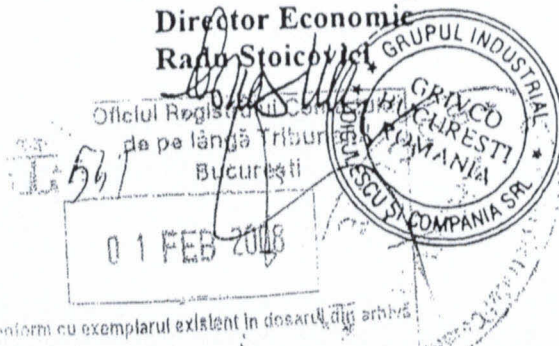 Director Economic
Radu Stoicovici
GRUPUL INDUSTRIAL
GRINCO
BUCURESTI
ROMANIA
ȘI COMPANIA SRL
Oficiul Registrului
de pe lângă
București
541
01 FEB 2008
conform cu exemplarul existent în dosarul din arhivă